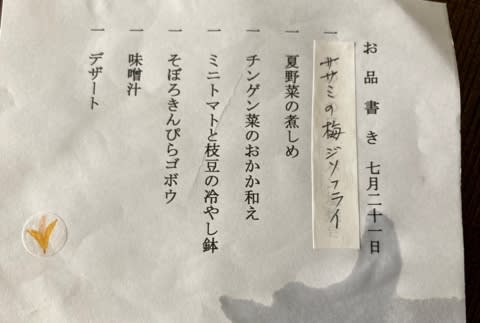 お品書き 七月二十一日
一 ササミの梅ジソフライ
一 夏野菜の煮しめ
一 チンゲン菜のおかか和え
一 ミニトマトと枝豆の冷やし鉢
一 そぼろきんぴらゴボウ
一 味噌汁
一 デザート